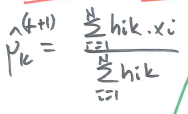 μ̂_k^(t+1) = \frac{\sum_{i=1}^{N} hik \cdot xi}{\sum_{i=1}^{N} hik}